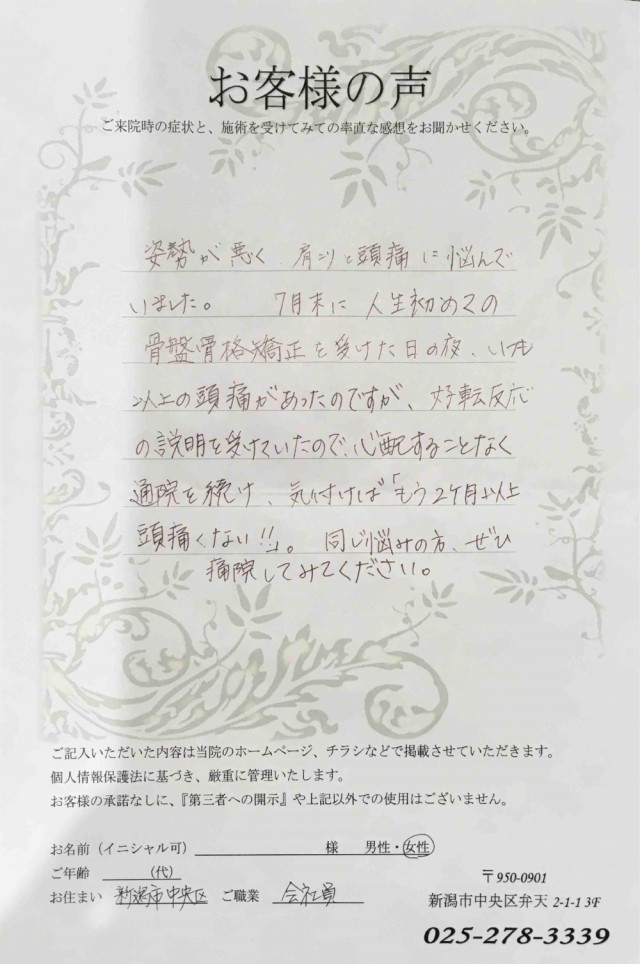 お客様の声
ご来院時の症状と、施術を受けてみての率直な感想をお聞かせください。
姿勢が悪く、肩こりと頭痛に悩んで
いました。 7月末に人生初めての
骨盤骨格矯正を受けた日の夜、いつも
以上の頭痛があったのですが、好転反応
の説明を受けていたので、心配することなく
通院を続け、気付けば「もう2ケ月以上
頭痛くない!!」。 同じ悩みの方、ぜひ
痛院してみてください。
ご記入いただいた内容は当院のホームページ、チラシなどで掲載させていただきます。
個人情報保護法に基づき、厳重に管理いたします。
お客様の承諾なしに、『第三者への開示』や上記以外での使用はございません。
お名前（イニシャル可） 様 男性・女性
ご年齢 （代）
お住まい 新潟市中央区 ご職業 会社員
〒950-0901
新潟市中央区弁天 2-1-1 3F
025-278-3339